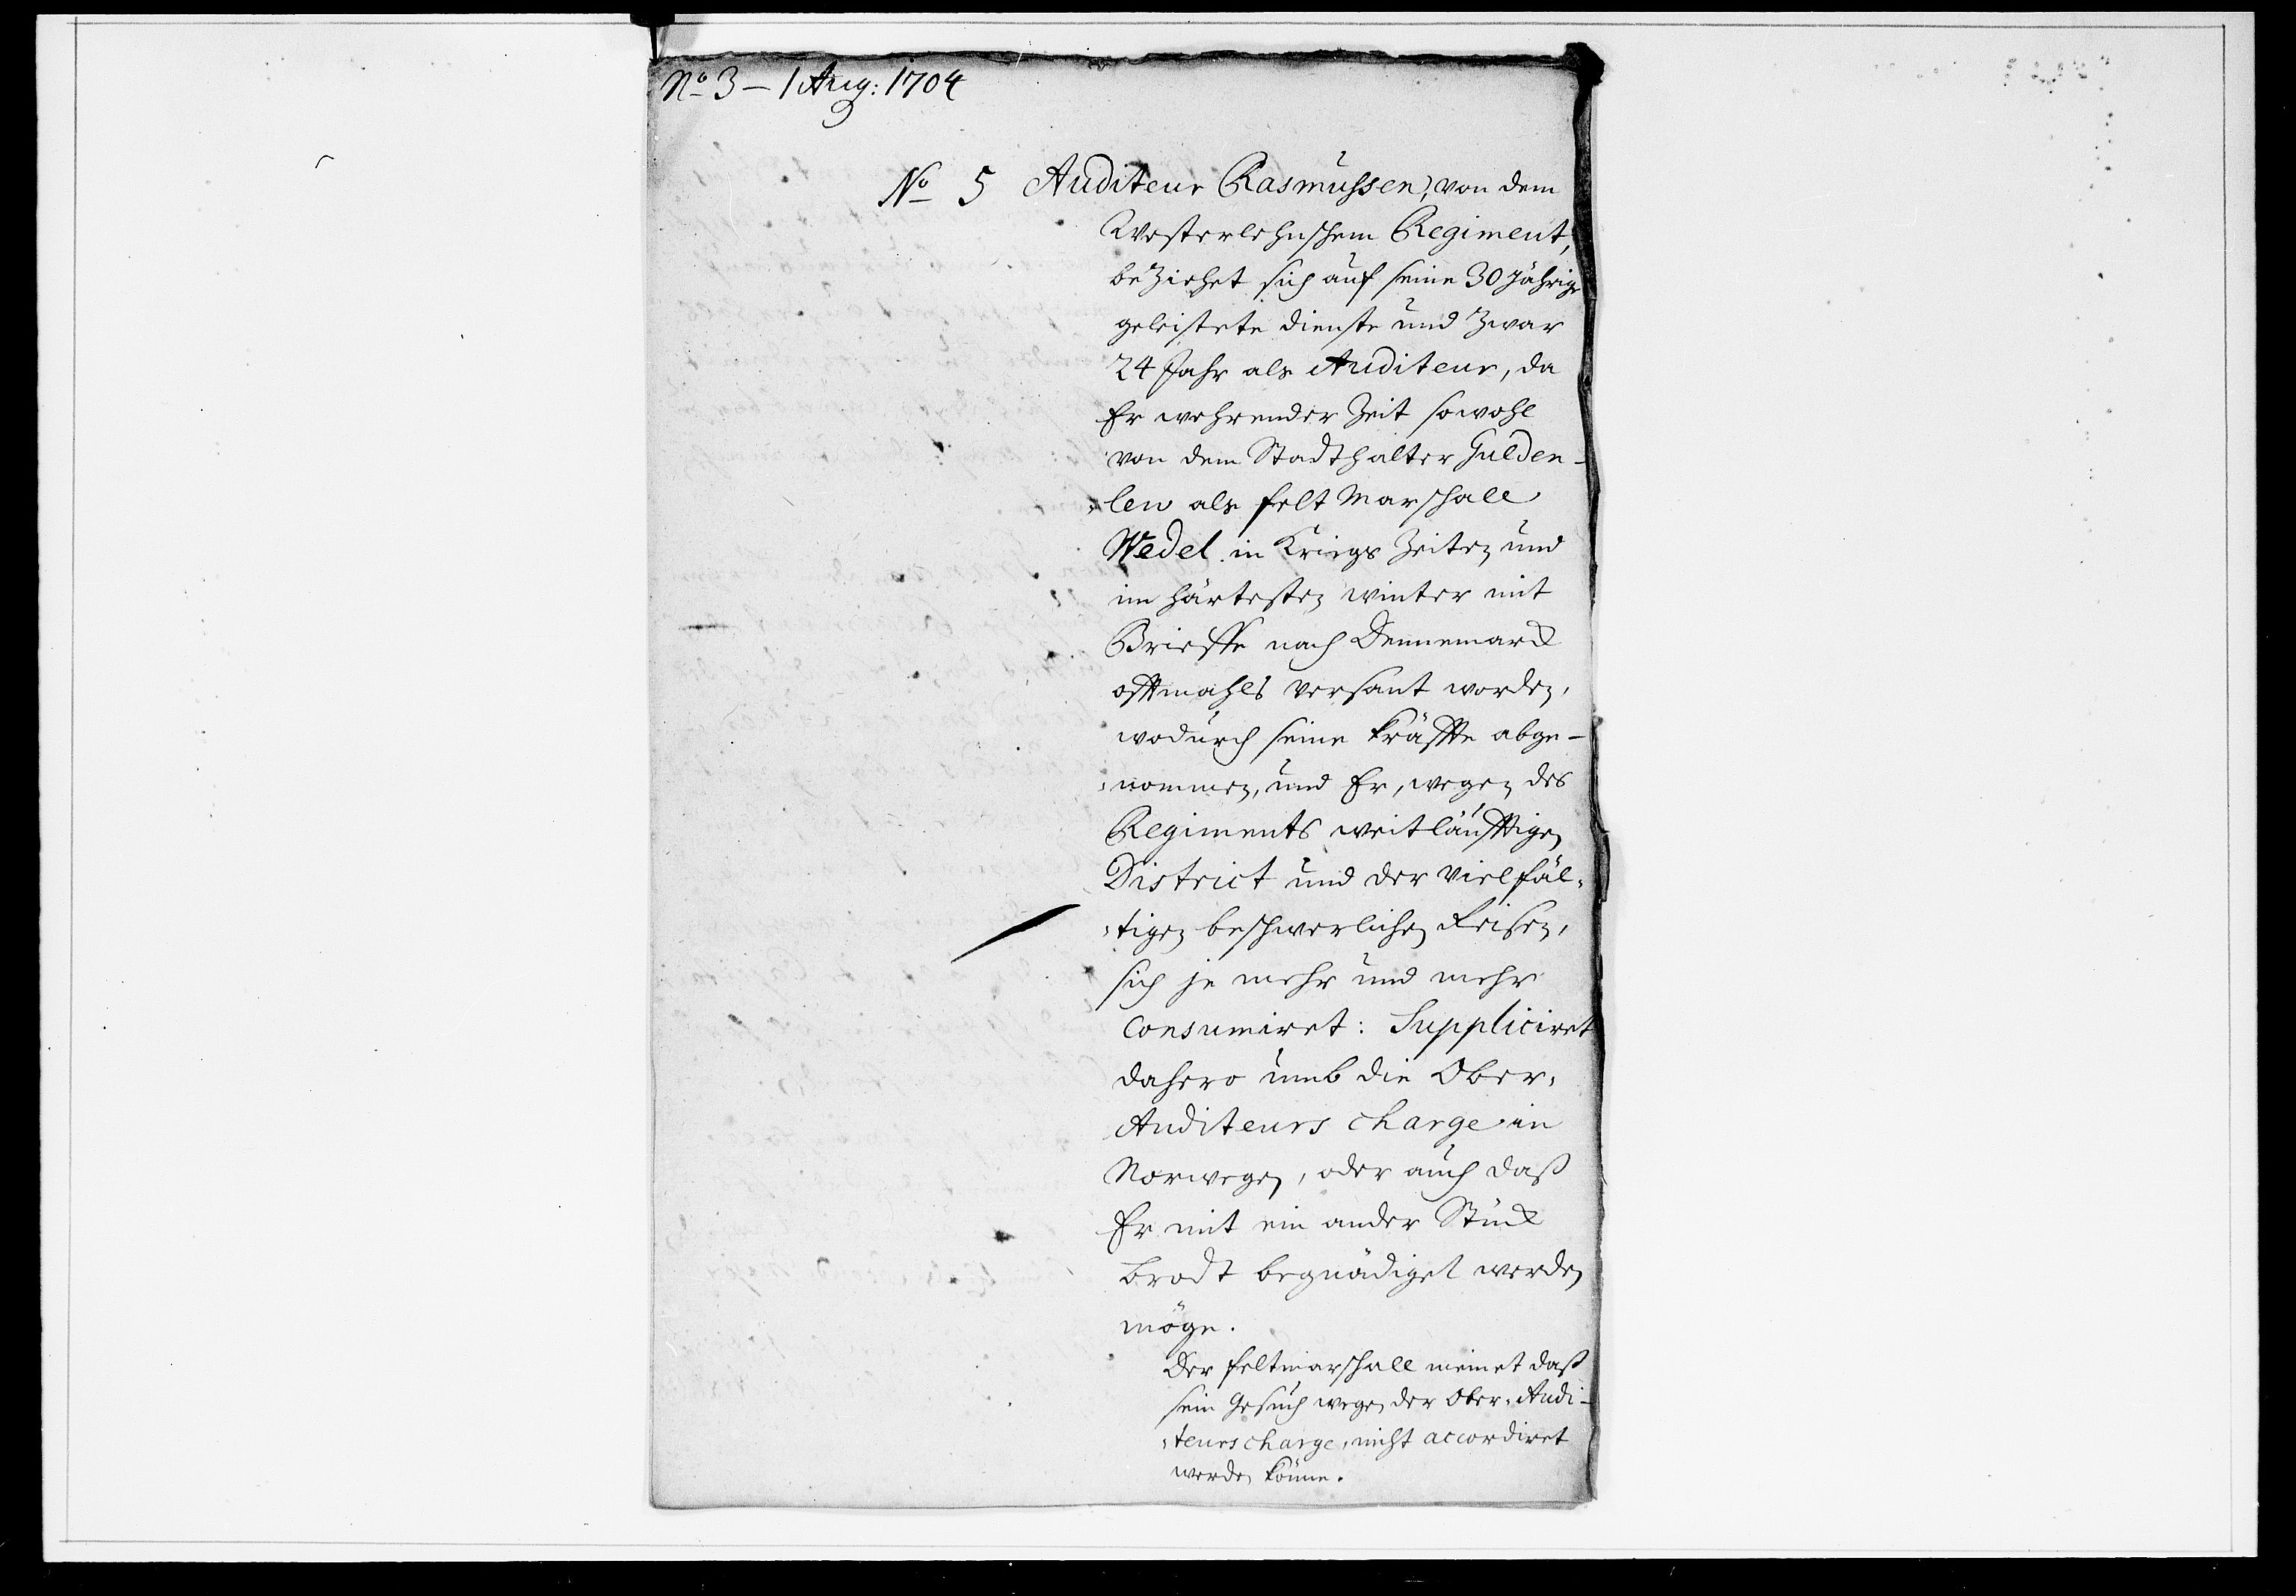 No 3 — 1 Aug: 1704
No 5 Auditeur Rasmussen, von dem
Westerlehnschem Regiment,
beziehet sich auf seine 30 Jährige
geleistete dienste und zwar
24 Jahr als Auditeur, da
Er wehrender Zeit sowohl
von dem Stadthalter Gulden-
lew als felt Marschall
Wedel in Kriegs Zeiten und
im härtesten winter mit
Brieffe nach Dennemarck
offtmahls versant worden,
wodurch seine kräffte abge-
nommen, und Er, wegen des
Regiments weitläufftigen
District und der vielfäl-
tigen beschwerlichen Reisen,
sich je mehr und mehr
consumiret: Suppliciret
dahero umb die Ober-
Auditeurs charge in
Norwegen, oder auch daß
Er mit ein ander Stück
brodt begnädiget werden
möge.
Der feltmarschall meinet daß
sein Gesuch wegen der Ober-Audi-
teurs charge, nicht accordiret
werden könne.